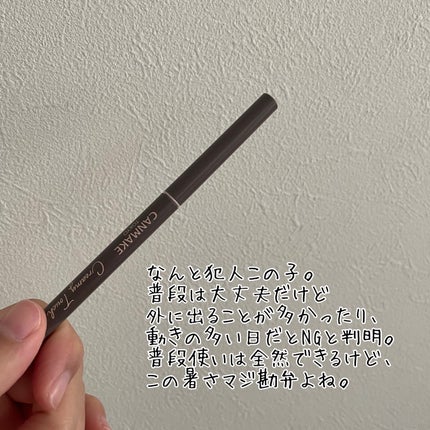 CANMAKE
TOKYO
Creamy Touch
なんと犯人この子。
普段は大丈夫だけど
外に出ることが多かったり、
動きの多い日だとNGと判明。
普段使いは全然できるけど、
この暑さマジ勘弁よね。